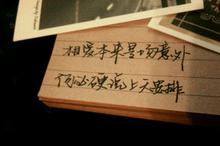 相爱本来是场意外
何必硬说上天安排